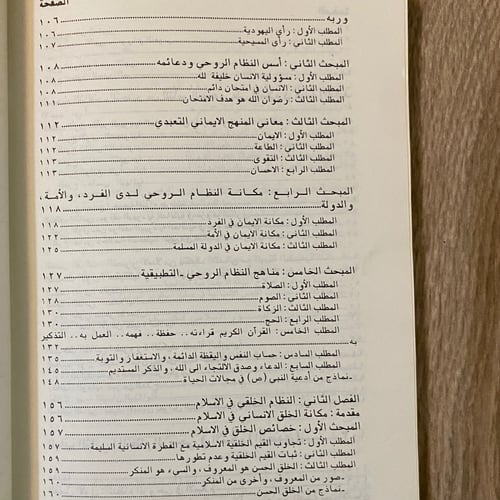 الصفحة
وربه ........ ١٠٦
المطلب الأول : رأي اليهودية ........ ١٠٦
المطلب الثاني : رأي المسيحية ........ ١٠٧
المبحث الثاني : أسس النظام الروحي ودعائمه ........ ١٠٨
المطلب الأول : مسؤولية الانسان خليفة لله ........ ١٠٨
المطلب الثاني : الانسان في امتحان دائم ........ ١٠٨
المطلب الثالث : رضوان الله هو هدف الامتحان ........ ١١١
المبحث الثالث : معاني المنهج الايماني التعبدي ........ ١١٢
المطلب الأول : الايمان ........ ١١٢
المطلب الثاني : الطاعة ........ ١١٢
المطلب الثالث : التقوى ........ ١١٣
المطلب الرابع : الاحسان ........ ١١٣
المبحث الرابع : مكانة النظام الروحي لدى الفرد، والأمة،
والدولة ........ ١١٨
المطلب الأول : مكانة الايمان في الفرد ........ ١١٨
المطلب الثاني : مكانة الايمان في الأمة ........ ١٢٢
المطلب الثالث : مكانة الايمان في الدولة المسلمة ........ ١٢٥
المبحث الخامس : مناهج النظام الروحي -التطبيقية ........ ١٢٧
المطلب الأول : الصلاة ........ ١٢٧
المطلب الثاني : الصوم ........ ١٢٨
المطلب الثالث : الزكاة ........ ١٣٠
المطلب الرابع : الحج ........ ١٣٠
المطلب الخامس : القرآن الكريم قراءته.. حفظة.. فهمه.. العمل به.. التذكير
به ........ ١٣٢
المطلب السادس : حساب النفس واليقظة الدائمة، والاستغفار والتوبة ........ ١٣٥
المطلب السابع : الدعاء وصدق الالتجاء الى الله، والذكر المستديم ........ ١٤٥
-نماذج من أدعية النبي (ص) في مجالات الحياة ........ ١٤٨
الفصل الثاني : النظام الخلقي في الاسلام ........ ١٥٦
مقدمة : مكانة الخلق الانساني في الاسلام ........ ١٥٦
المبحث الأول : خصائص الخلق في الاسلام ........ ١٥٧
المطلب الأول : تجاوب القيم الخلقية الاسلامية مع الفطرة الانسانية السليمة ........ ١٥٧
المطلب الثاني : ثبات القيم الخلقية وعدم تطورها ........ ١٥٩
المطلب الثالث : الخلق الحسن هو المعروف، والسيء هو المنكر ........ ١٥٩
-صور من المعروف، وأخرى من المنكر ........ ١٦٠
-نماذج من الخلق الحسن ........ ١٦٠